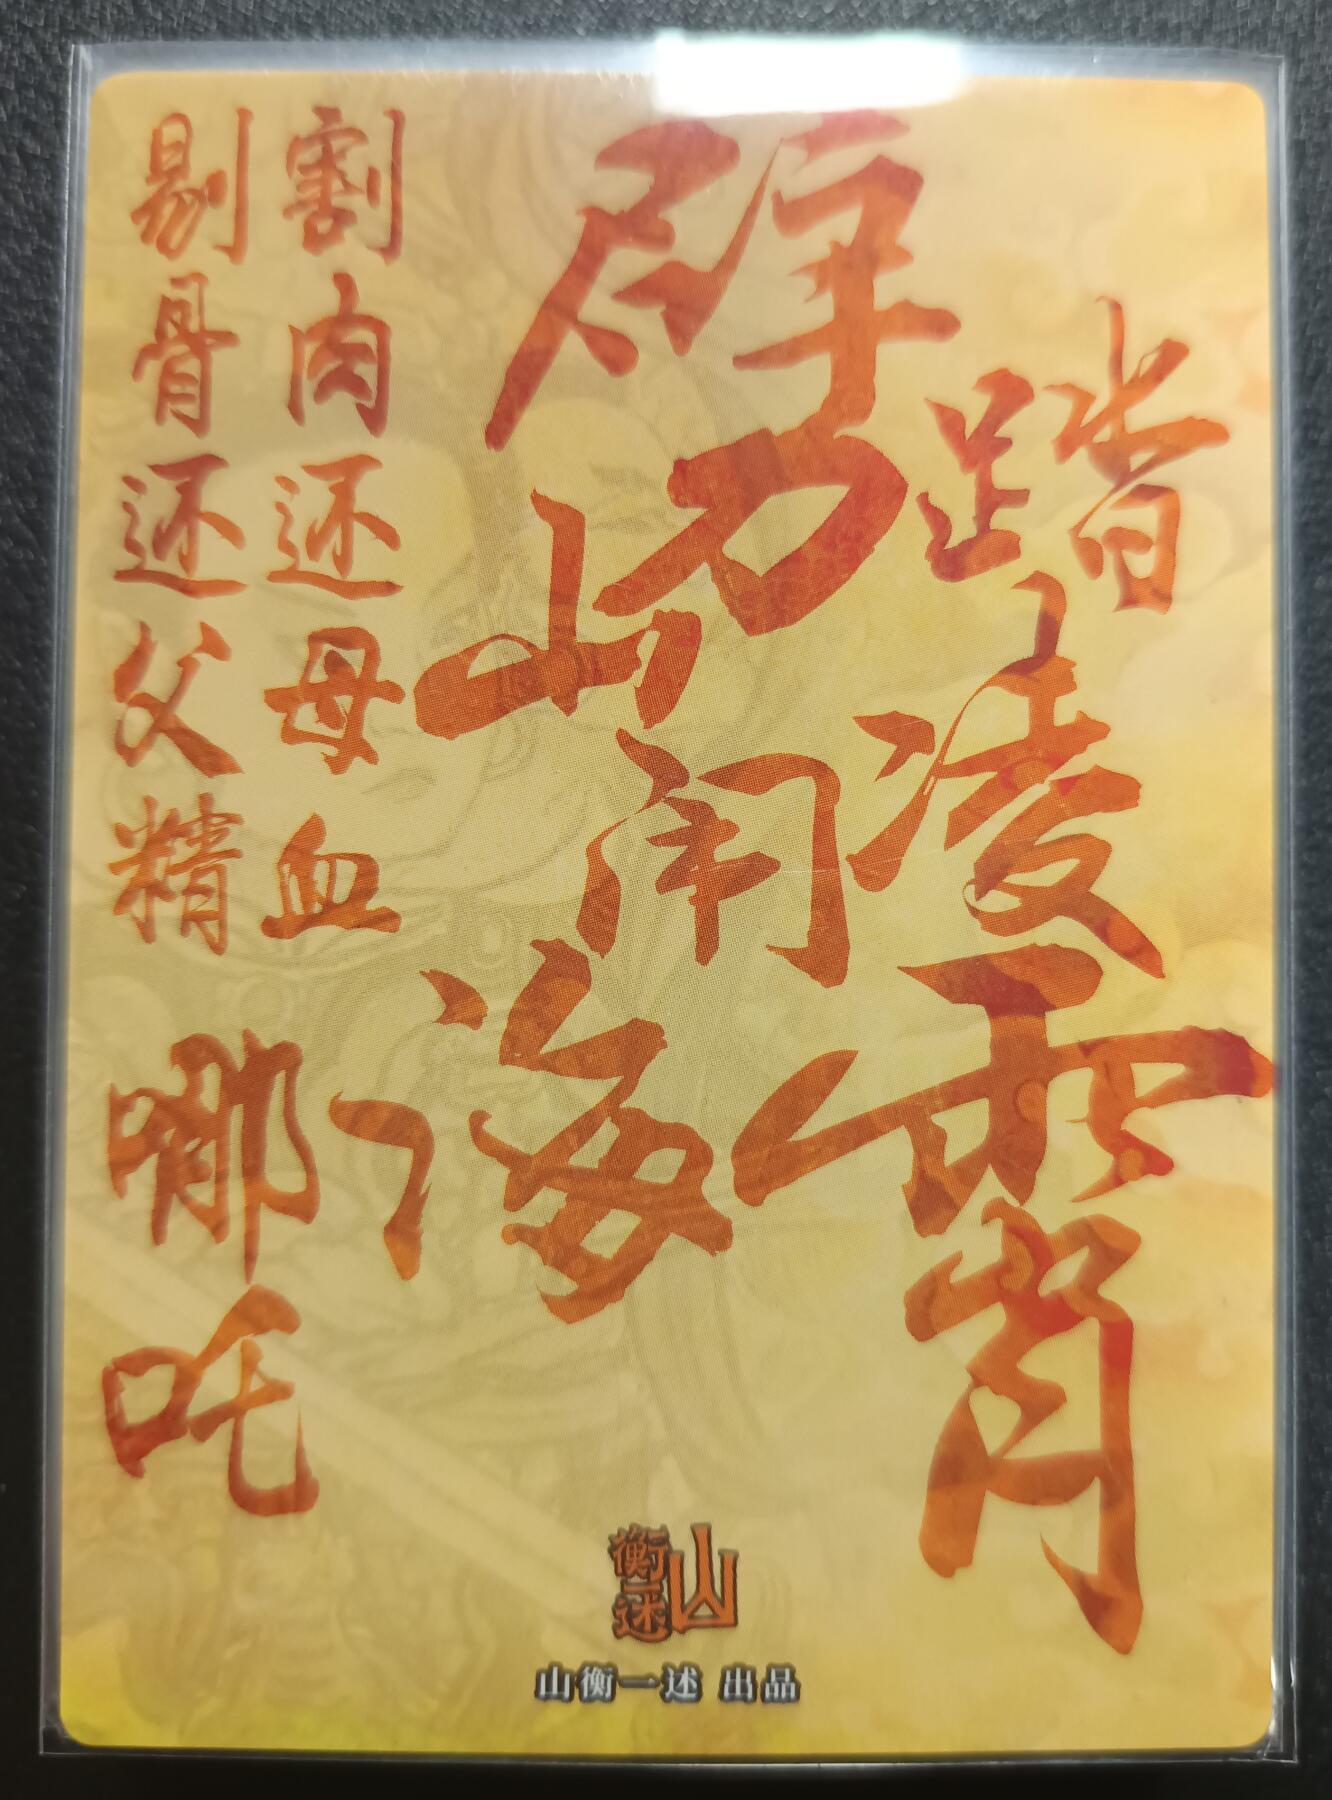 踏凌霄
劈山闹海
割肉还母血
剔骨还父精
哪吒
山衡一述
山衡一述 出品